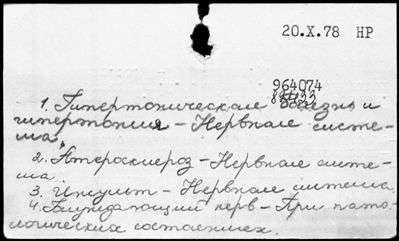 20.X.78 НР
964074
1. Гипертоническая болезнь и
гипертония – Нервная систе-
ма.
2. Атеросклероз – Нервная систе-
ма.
3. Инсульт – Нервная система.
4. Блуждающий нерв – При пато-
логических состояниях.